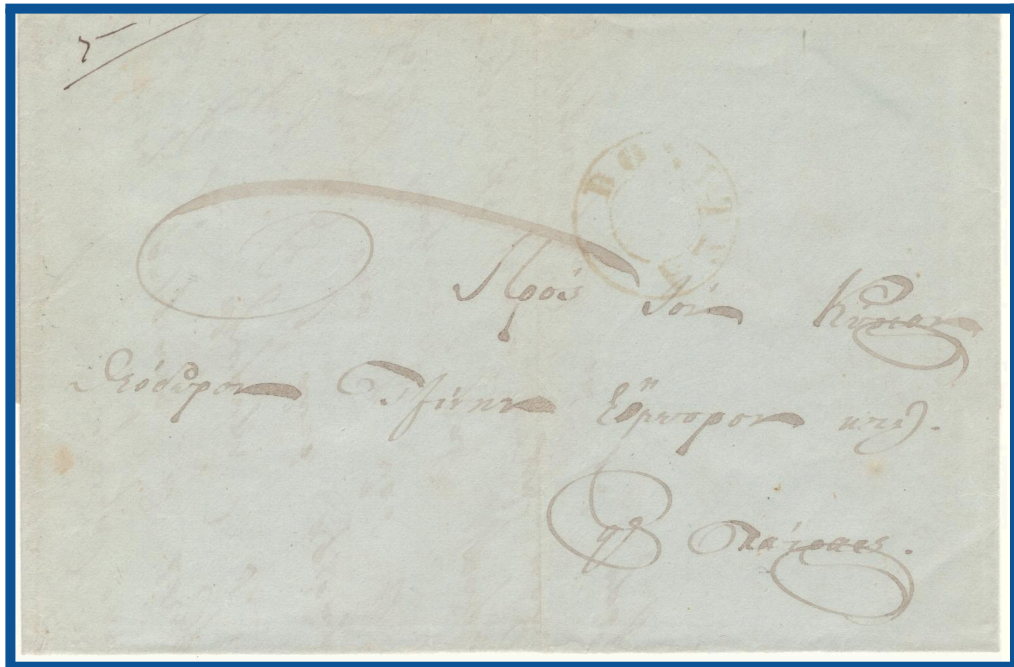 5
Πρός τον Κύριον
Θεόδωρον Τζίνην Ἔμπορον κτλ.
Πάτρας.